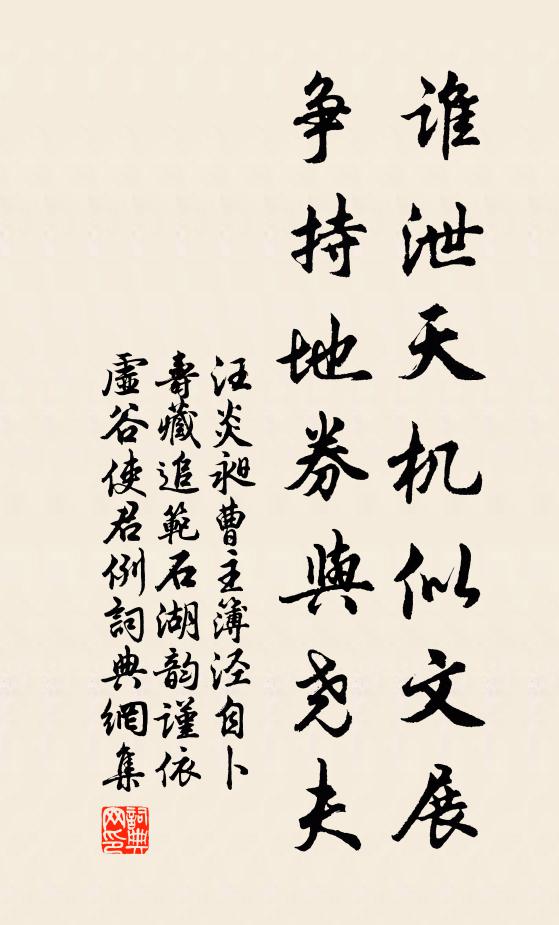 谁泄天机似文展
争持地券與尧夫
汪炎昶曹主簿泾自卜
壽藏追範石湖韵谨依
虚谷使君例詞典網集
詞典网印